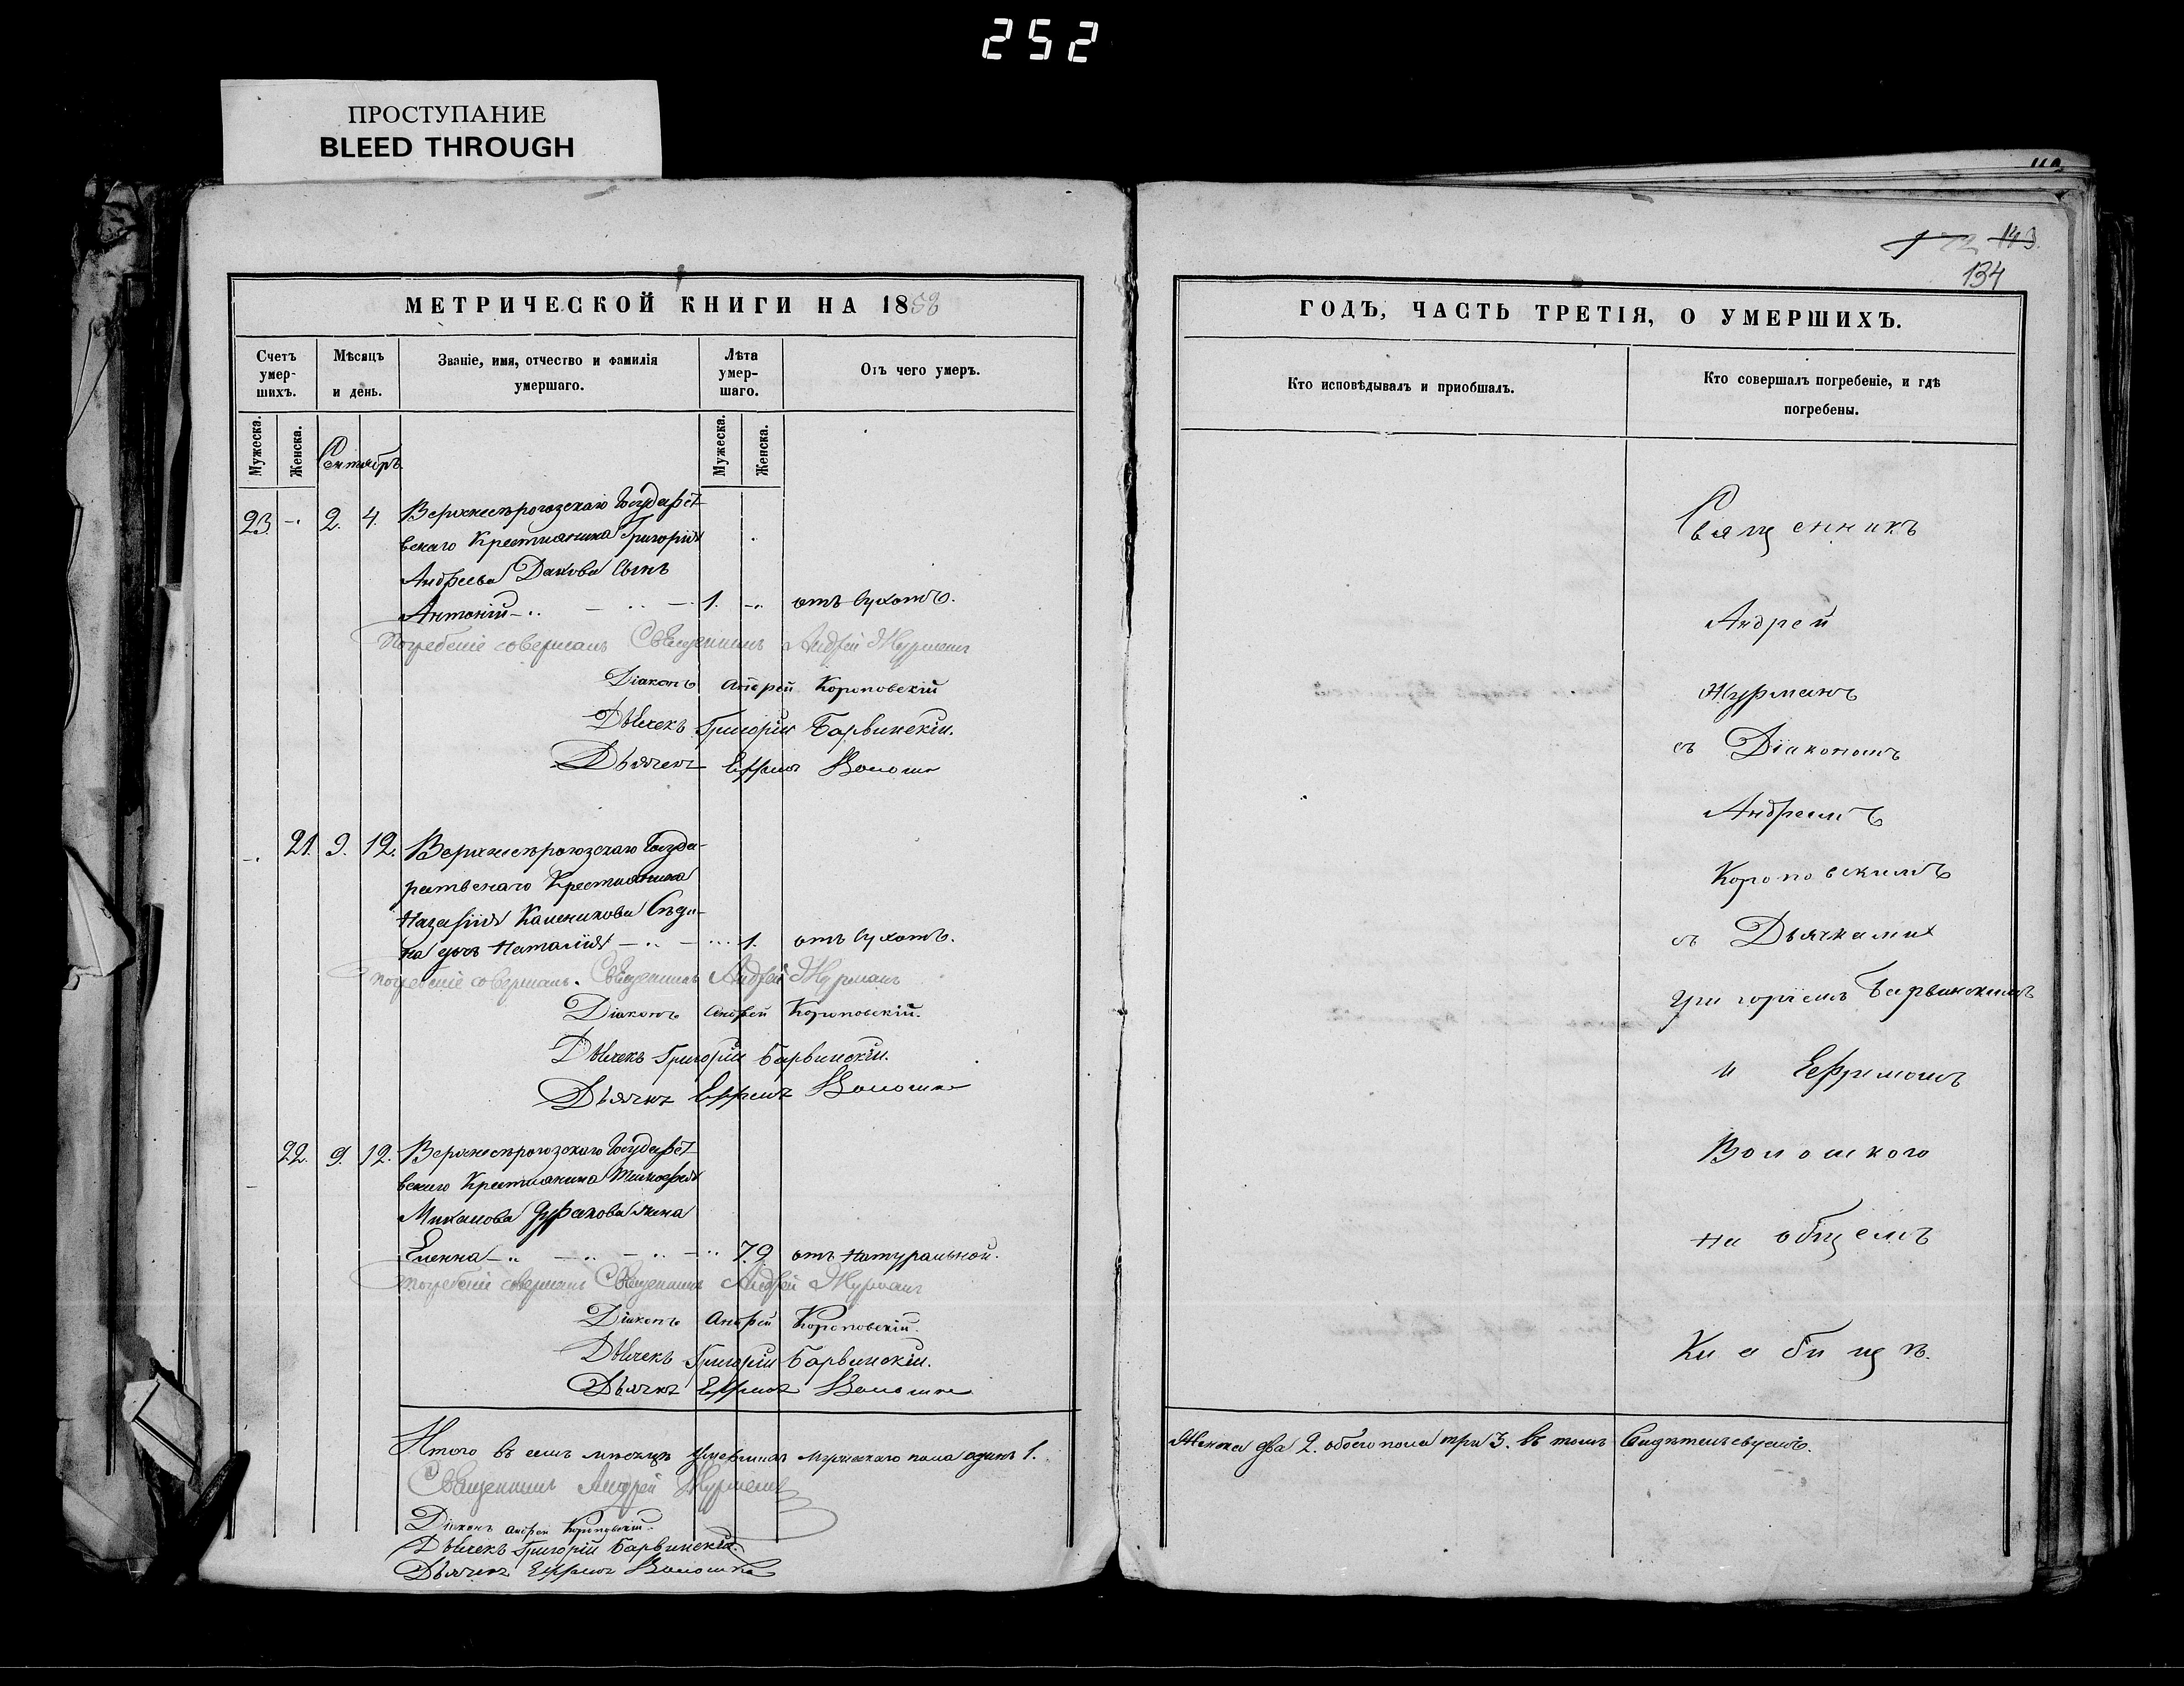 252
ПРОСТУПАНИЕ
BLEED THROUGH
143.
134
МЕТРИЧЕСКОЙ КНИГИ НА 1858
Счетъ умер-шихъ.
Мѣсяцъ и день.
Званіе, имя, отчество и фамилія умершаго.
Лѣта умер-шаго.
Отъ чего умеръ.
Мужеска.
Женска.
Мужеска.
Женска.
Сентябрь
23. -. 2. 4. Верхнесѣрогозскаго Государст
вскаго Крестианина Григорія
Андреева сынъ
Антоній 1. -. отъ сухотъ.
Погребеніе совершалъ Священникъ Андрей Журманъ
Діаконъ Андрей Короповскій
Дьячекъ Григорій Барвинскій.
Дьячекъ Ефремъ Волошко
-. 21. 9. 12. Верхнесѣрогозскаго Госуда-
рственнаго Крестианина
Назарія
на дочь Наталія 1. отъ сухотъ.
погребеніе совершалъ. Священникъ Андрей Журманъ
Діаконъ Андрей Короповскій.
Дьячекъ Григорій Барвинскій.
Дьячекъ Ефремъ Волошко
22. 9. 12. Верхнесѣрогозскаго Государст
вскаго Крестианина Тимофея
жена
Еленна 79. отъ натуральной.
погребеніе совершалъ Священникъ Андрей Журманъ
Діаконъ Андрей Короповскій.
Дьячекъ Григорій Барвинскій.
Дьячекъ Ефремъ Волошко
Итого въ семъ мѣсяцѣ умершихъ мужескаго пола одинъ 1.
Священникъ Андрей Журманъ
Діаконъ Андрей Короповскій.
Дьячекъ Григорій Барвинскій.
Дьячекъ Ефремъ Волошко
ГОДЪ, ЧАСТЬ ТРЕТІЯ, О УМЕРШИХЪ.
Кто исповѣдывалъ и пріобщалъ.
Кто совершалъ погребеніе, и гдѣ погребены.
Священникъ
Андрей
Журманъ
съ Діакономъ
Андреемъ
Короповскимъ
съ Дьячками
Григоріемъ Барвинскимъ
и Ефримомъ
Волошкого
на общемъ
Кладбищѣ.
Женска два 2. обоего пола три 3. въ томъ